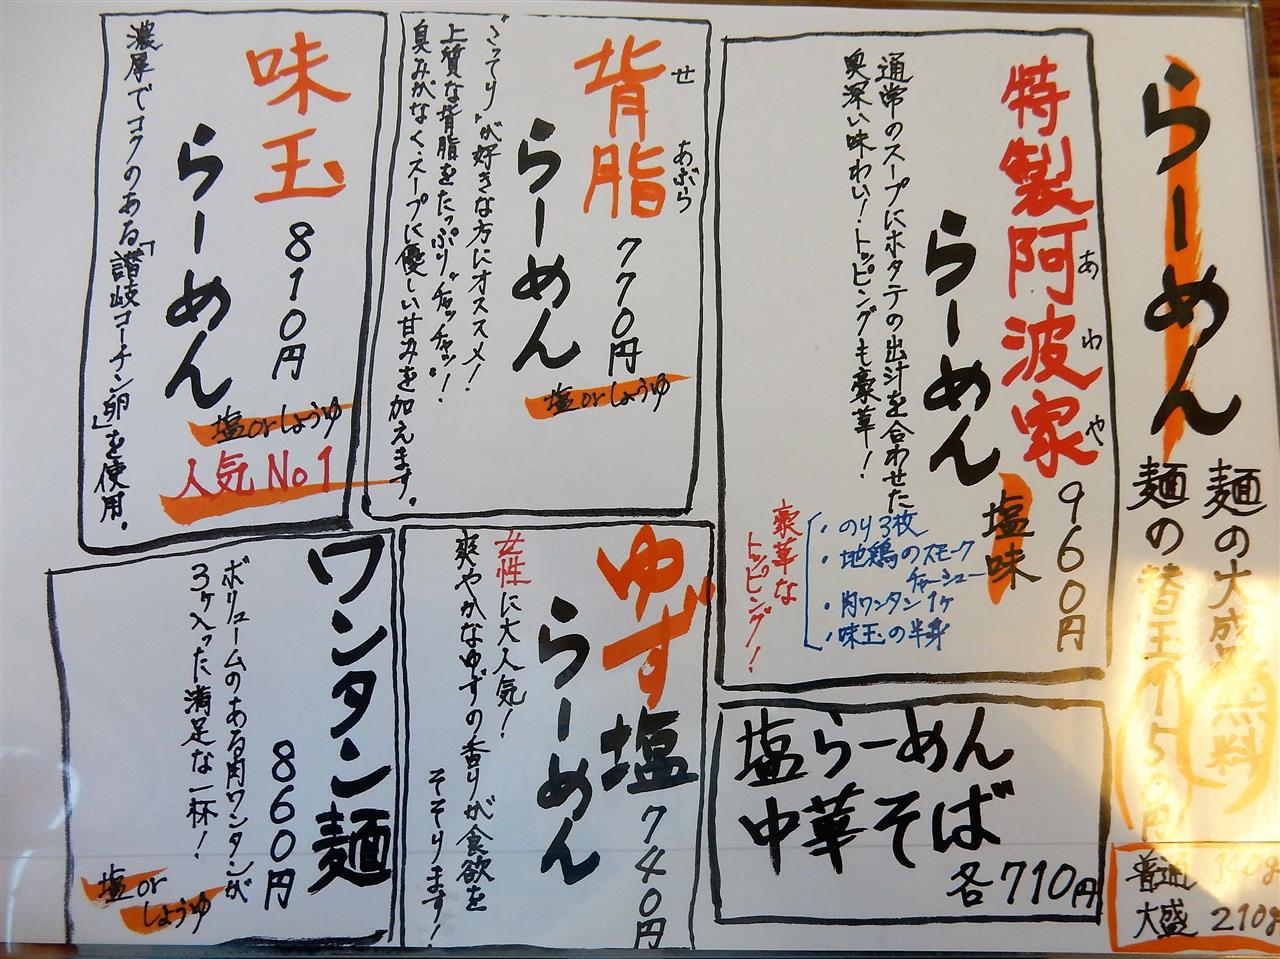 らーめん
麺の大盛無料
麺の替玉150円
普通 140g
大盛 210g
特製阿波家
あわや
らーめん
960円
塩味
通常のスープにホタテの出汁を合わせた
奥深い味わい!トッピングも豪華!
豪華な
トッピング!
・のり3枚
・地鶏のスモーク
チャーシュー
・肉ワンタン1ヶ
・味玉の半身
塩らーめん
中華そば
各710円
背脂
せあぶら
らーめん
770円
塩orしょうゆ
"こってり"が好きな方にオススメ!
上質な背脂をたっぷり"チャッチャッ"!
臭みがなくスープに優しい甘みを加えます。
ゆず塩
らーめん
740円
女性に大人気!
爽やかなゆずの香りが食欲を
そそります!
味玉
らーめん
810円
塩orしょうゆ
人気No1
濃厚でコクのある「讃岐コーチン卵」を使用。
ワンタン麺
860円
ボリュームのある肉ワンタンが
3ヶ入った満足な一杯!
塩or
しょうゆ